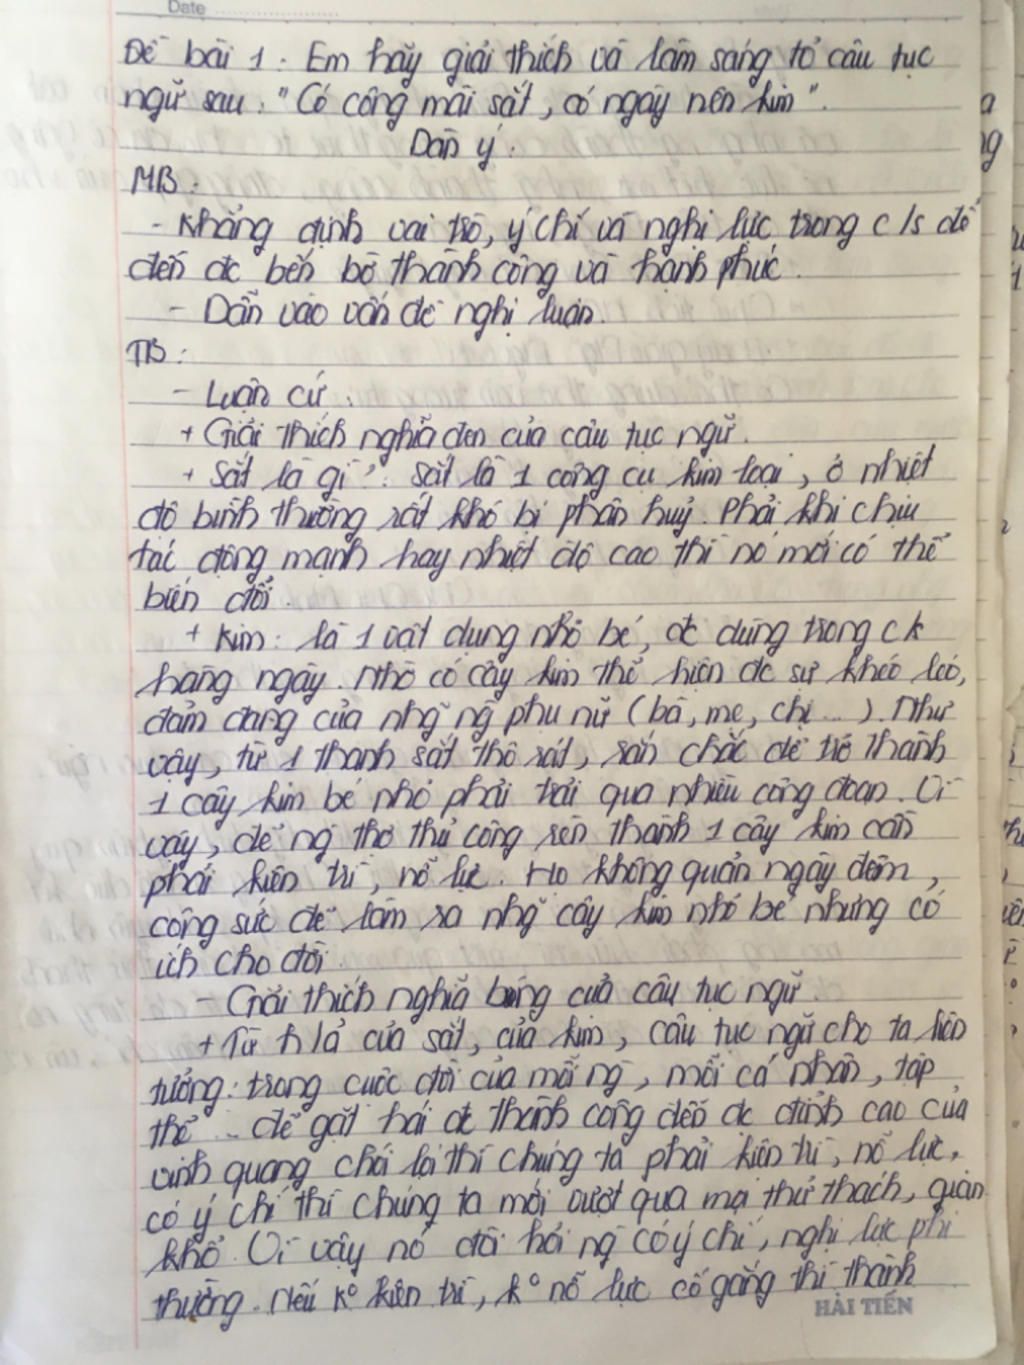 Date
Đề bài 1: Em hãy giải thích và làm sáng tỏ câu tục
ngữ sau: "Có công mài sắt, có ngày nên kim".
Dàn ý:
MB:
- Khẳng định vai trò, ý chí và nghị lực trong c/s để
đến đc bến bờ thành công và hạnh phúc.
- Dẫn vào vấn đề nghị luận.
TB:
- Luận cứ:
+ Giải thích nghĩa đen của câu tục ngữ.
+ Sắt là gì? Sắt là 1 công cụ kim loại, ở nhiệt
độ bình thường rất khó bị phân huỷ. Phải khi chịu
tác động mạnh hay nhiệt độ cao thì nó mới có thể
biến đổi.
+ Kim: là 1 vật dụng nhỏ bé, đc dùng trong c k
hàng ngày. Nhờ có cây kim thể hiện đc sự khéo léo,
đảm đang của nhg~ ng~ phụ nữ (bà, mẹ, chị...). Như
vậy, từ 1 thanh sắt thô ráp, rắn chắc để trở thành
1 cây kim bé nhỏ phải trải qua nhiều công đoạn. Vì
vậy, để ng thợ thủ công rèn thành 1 cây kim cần
phải kiên trì, nỗ lực. Họ không quản ngày đêm,
công sức để làm ra nhg~ cây kim nhỏ bé nhưng có
ích cho đời.
- Giải thích nghĩa bóng của câu tục ngữ.
+ Từ h/ả của sắt, của kim, câu tục ngữ cho ta liên
tưởng: trong cuộc đời của mỗi ng~, mỗi cá nhân, tập
thể ... để gặt hái đc thành công đến đc đỉnh cao của
vinh quang chói lọi thì chúng ta phải kiên trì, nỗ lực,
có ý chí thì chúng ta mới vượt qua mọi thử thách, gian
khổ. Vì vậy nó đòi hỏi ng~ có ý chí, nghị lực phi
thường. Nếu k° kiên trì, k° nỗ lực cố gắng thì thành
HẢI TIẾN